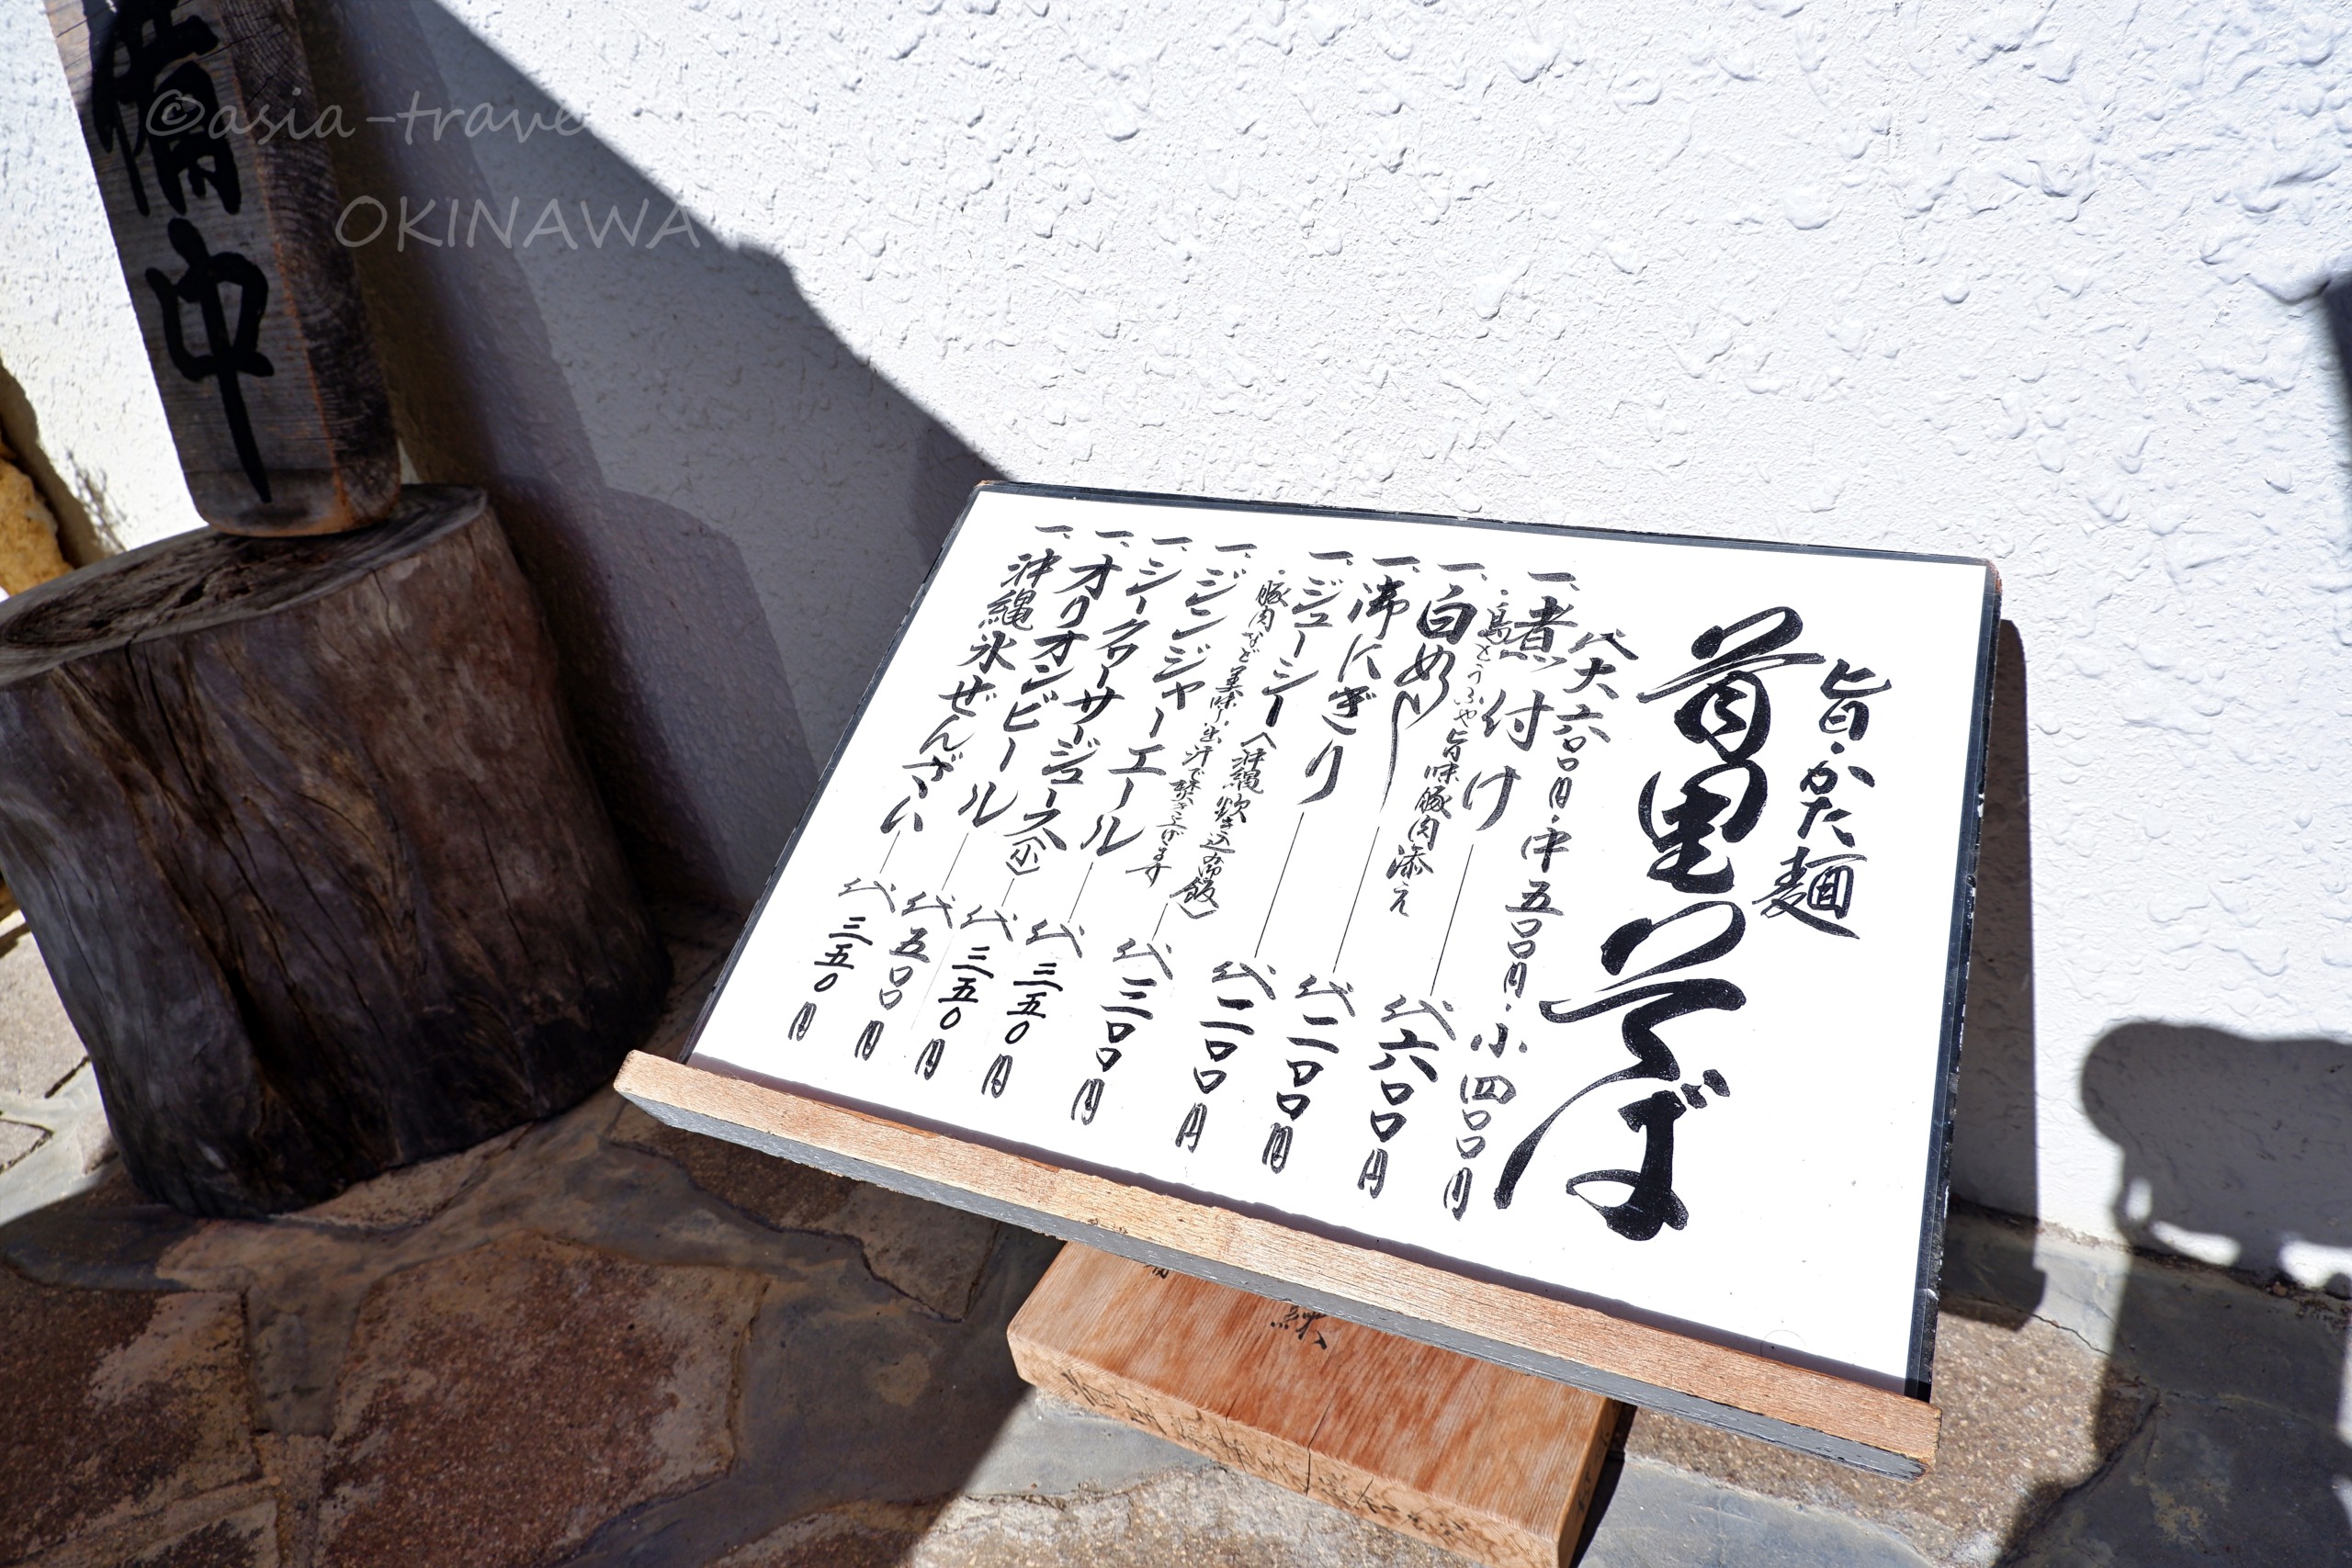 ©asia-trave
OKINAWA
備中
旨・かた麺
首里そば
代大六〇〇円・中五〇〇円・小四〇〇円
一、煮付け 代六〇〇円
・島とうふや旨味豚肉添え
一、白めし 代二〇〇円
一、沸にぎり 代二〇〇円
一、ジューシー(沖縄炊き込み御飯) 代三〇〇円
・豚肉など美味し出汁で焚き上げます
一、ジンジャーエール 代三五〇円
一、シークヮーサージュース(小) 代三五〇円
一、オリオンビール 代五〇〇円
一、沖縄氷ぜんざい 代三五〇円